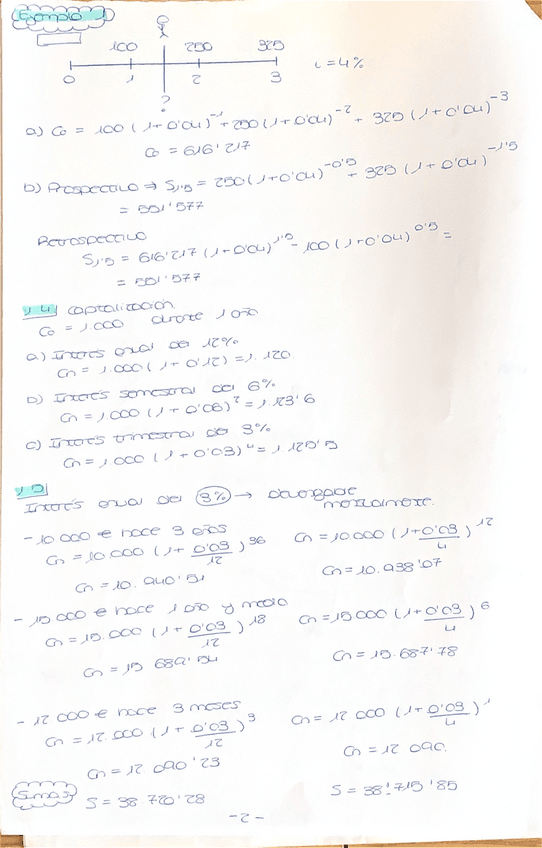 Ejemplo 1
100 250 325
0 1 2 3 i=4%
?
a) Co = 100 (1+0'04)^-1 + 250 (1+0'04)^-2 + 325 (1+0'04)^-3
Co = 616'217
b) Prospectivo ⇒ S1,5 = 250 (1+0'04)^-0'5 + 325 (1+0'04)^-1'5
= 551'577
Retrospectivo
S1,5 = 616'217 (1+0'04)^1'5 - 100 (1+0'04)^0'5 =
= 551'577
1.4 Capitalización
Co = 1.000 durante 1 año
a) Interés anual del 12%
Cn = 1.000 (1+0'12) = 1.120
b) Interés semestral del 6%
Cn = 1.000 (1+0'06)^2 = 1.123'6
c) Interés trimestral del 3%
Cn = 1.000 (1+0'03)^4 = 1.125'5
1.5
Interés anual del 3% → devengable
mensualmente.
- 10 000 € hace 3 años
Cn = 10.000 (1 + 0'03/12)^36 Cn = 10.000 (1+0'03/4)^12
Cn = 10.940'51 Cn = 10.938'07
- 15.000 € hace 1 año y medio
Cn = 15.000 (1 + 0'03/12)^18 Cn = 15.000 (1+0'03/4)^6
Cn = 15 689'54 Cn = 15.687'78
- 12 000 € hace 3 meses
Cn = 12.000 (1 + 0'03/12)^3 Cn = 12 000 (1+0'03/4)^1
Cn = 12 090'23 Cn = 12 090.
Sumas S = 38 720'28 S = 38'715'85
-2-